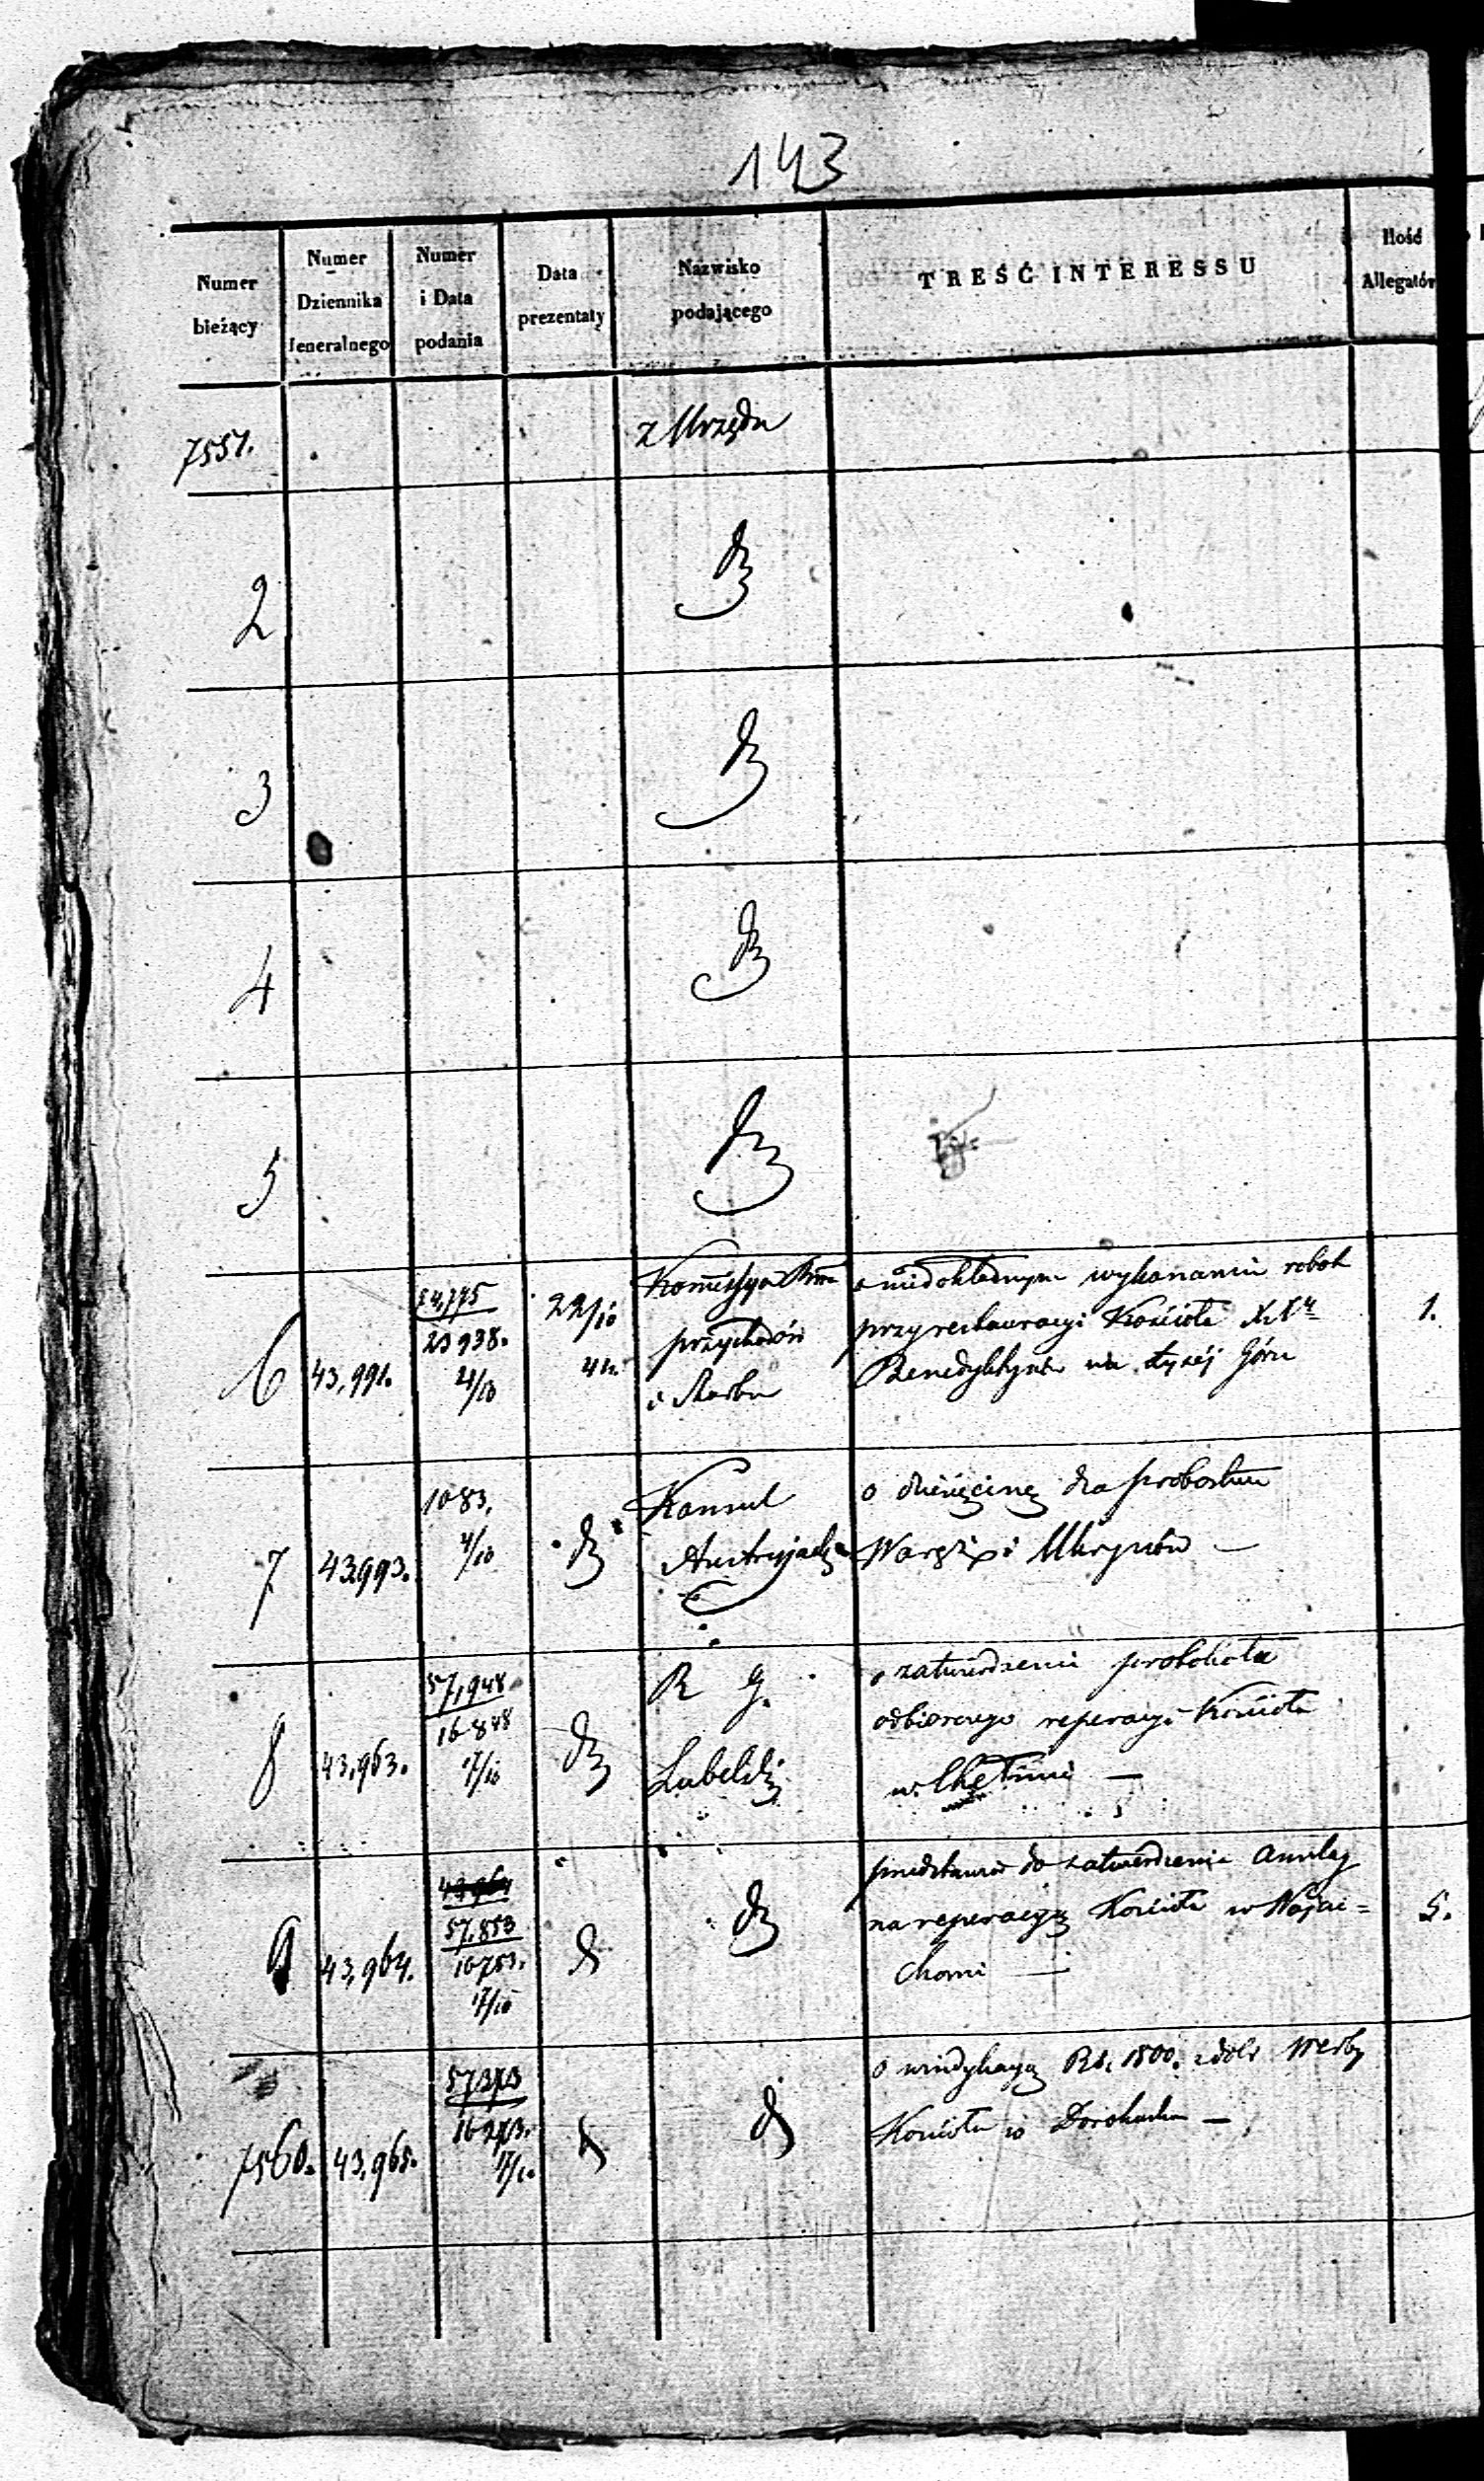 143
Numer bieżący
Numer Dziennika Jeneralnego
Numer i Data podania
Data prezentaty
Nazwisko podającego
TREŚĆ INTERESSU
Ilość Allegatów
7551. z Urzędu
2 dz
3 dz
4 dz
5 dz
6 43,991. 23938. 21/10 22/10 Komissya
przychodów
i Skarbu
o niedokładnym wykonaniu robót
przy restauracyi Kościoła
Benedyktynów na Łyséj Górze
1.
7 43993. 1083. 4/10 dz Konsul
Austryjacki
o dziesięcinę dla probostwa
Waręż i Uhrynów —
8 43,963. 57,948 16848 17/10 dz R G.
Lubelski
o zatwierdzenie protokołu
odbiorczego reperacyi Kościoła
w Chełmie —
9 43,964. 43,964 57,853 16753. 17/10 dz dz
przedstawia do zatwierdzenia anszlag
na reperacyą Kościoła w Wojcie=
chowie —
5.
7560. 43,965. 57373 16273. 17/10 dz dz
o windykacyą Rs. 1800. z dóbr
Kościoła w Dorohusku —